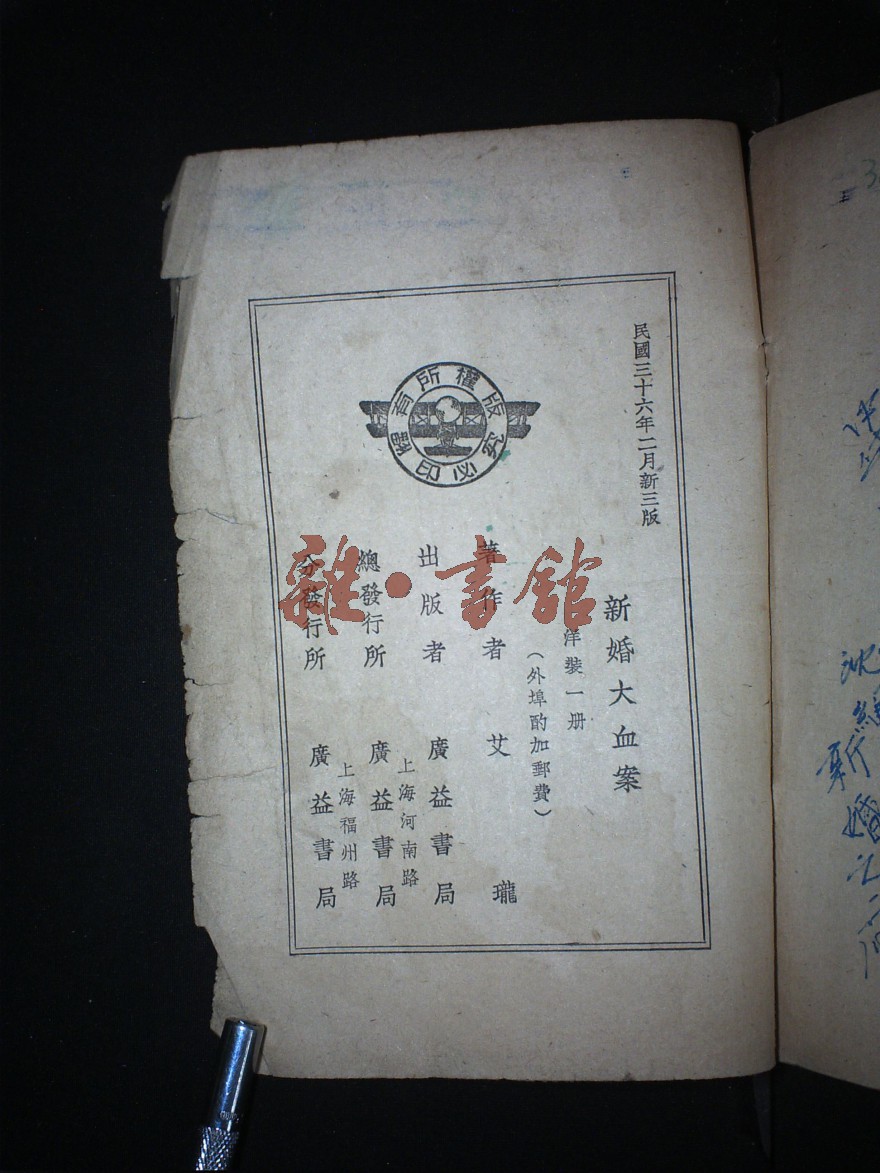 民國三十六年二月新三版
新婚大血案
洋裝一册
(外埠酌加郵費)
著作者 艾瓏
出版者 廣益書局
總發行所 上海河南路 廣益書局
分發行所 上海福州路 廣益書局
版權所有
翻印必究
雜·書館
3
新婚之